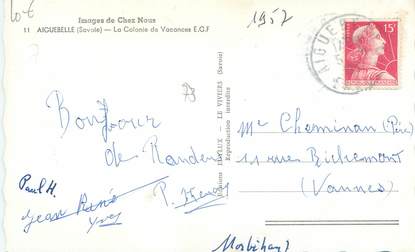 10€
Images de Chez Nous
11 AIGUEBELLE (Savoie) — La Colonie de Vacances E.G.F
1957
AIGUEB
15F
73
Bonjour
de Randen
Paul H.
Jean René
Yves
P. Henry
Editions JULYLUX — LE VIVIERS (Savoie)
Reproduction interdite
Mr Cheminan (Père)
11 rue Richemont
(Vannes)
Morbihan